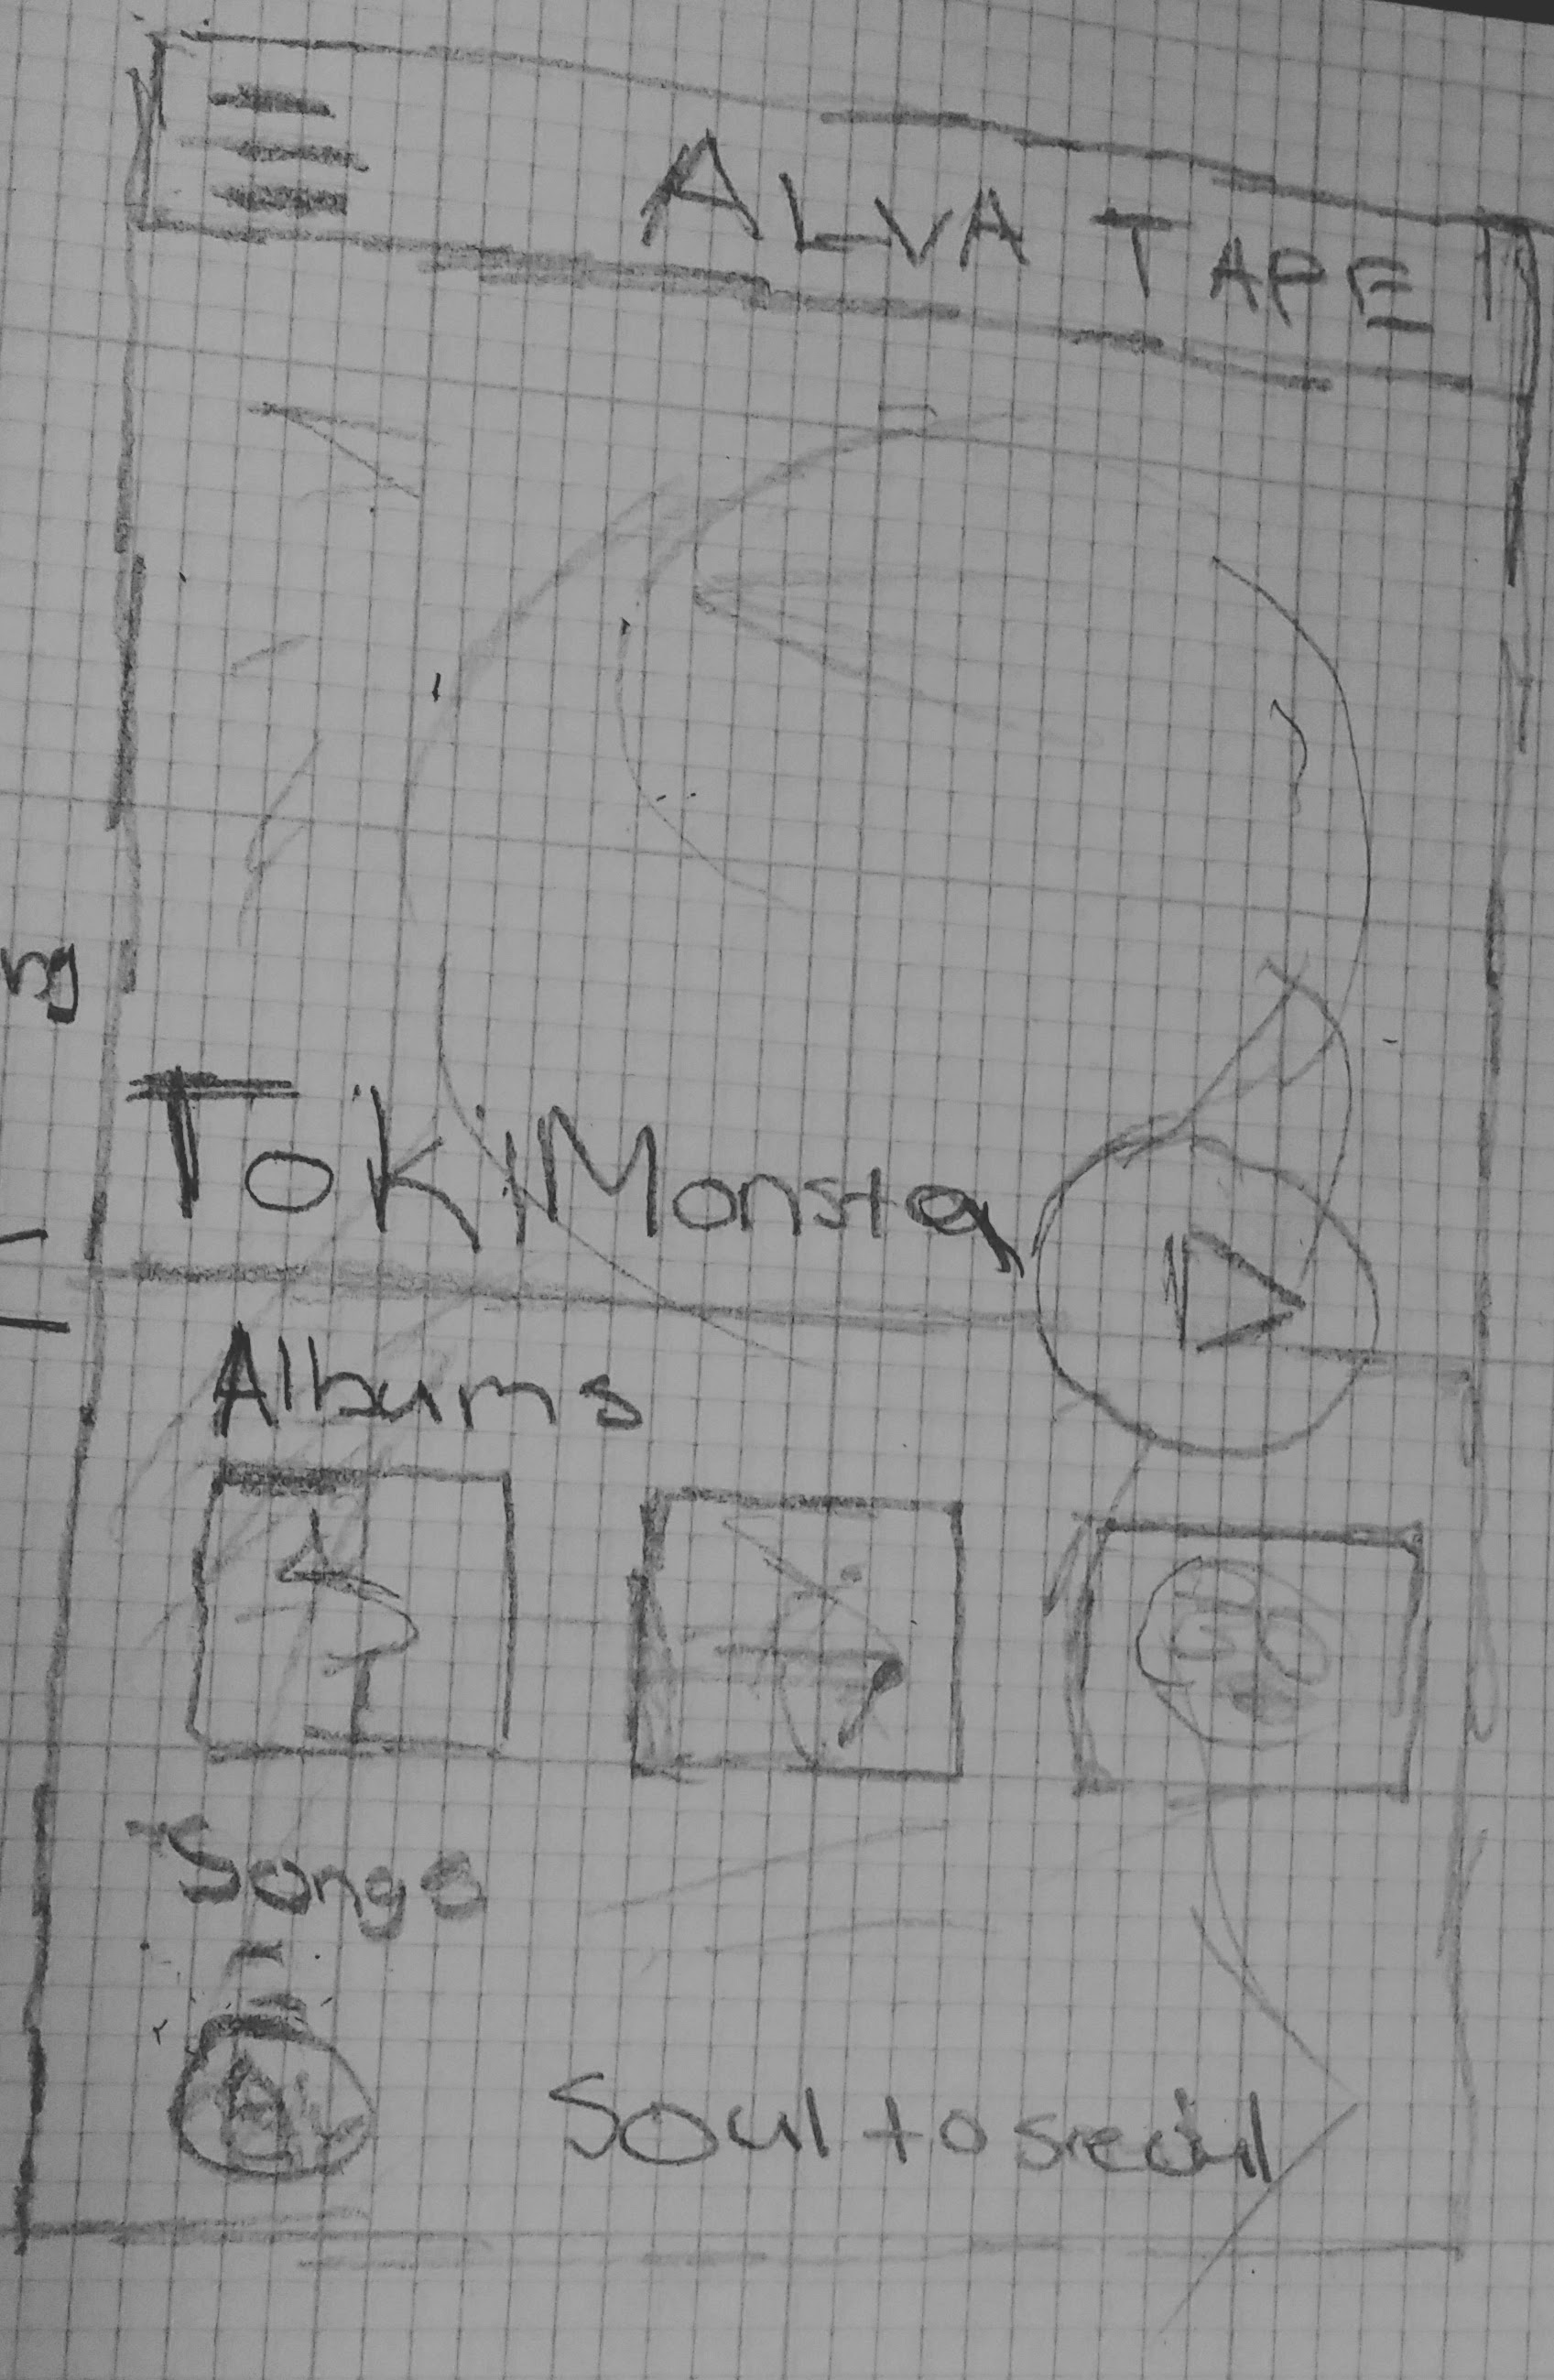 ALVA TAPE
ng
TOKiMonsta
Albums
Songs
Soul to seoul